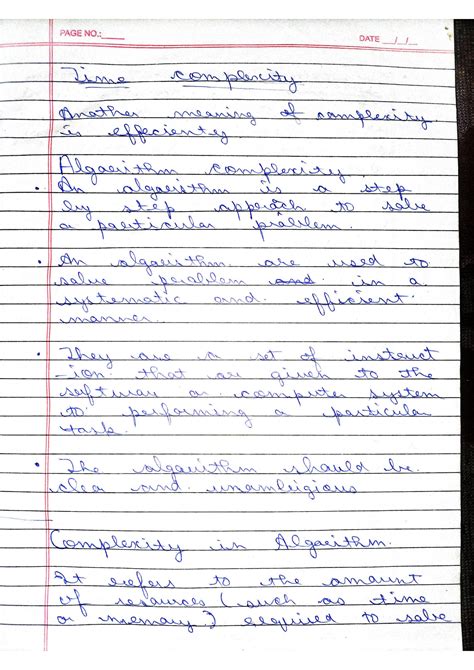 PAGE NO.:
DATE / /
Time complexity
Another meaning of complexity
is effecienty
Algaorithm complexity
• An algaorithm is a step
by step approach to solve
a particular problem.
• An algaorithm are used to
solve peroblem and in a
systematic and efficient
manner.
• They are a set of instruct
-ion that are given to the
software or computer system
to performing a particular
task.
• The algaorithm should be
clea and unambigious
Complexity in Algaorithm.
It refers to the amount
of resources (such as time
or memory) required to solve